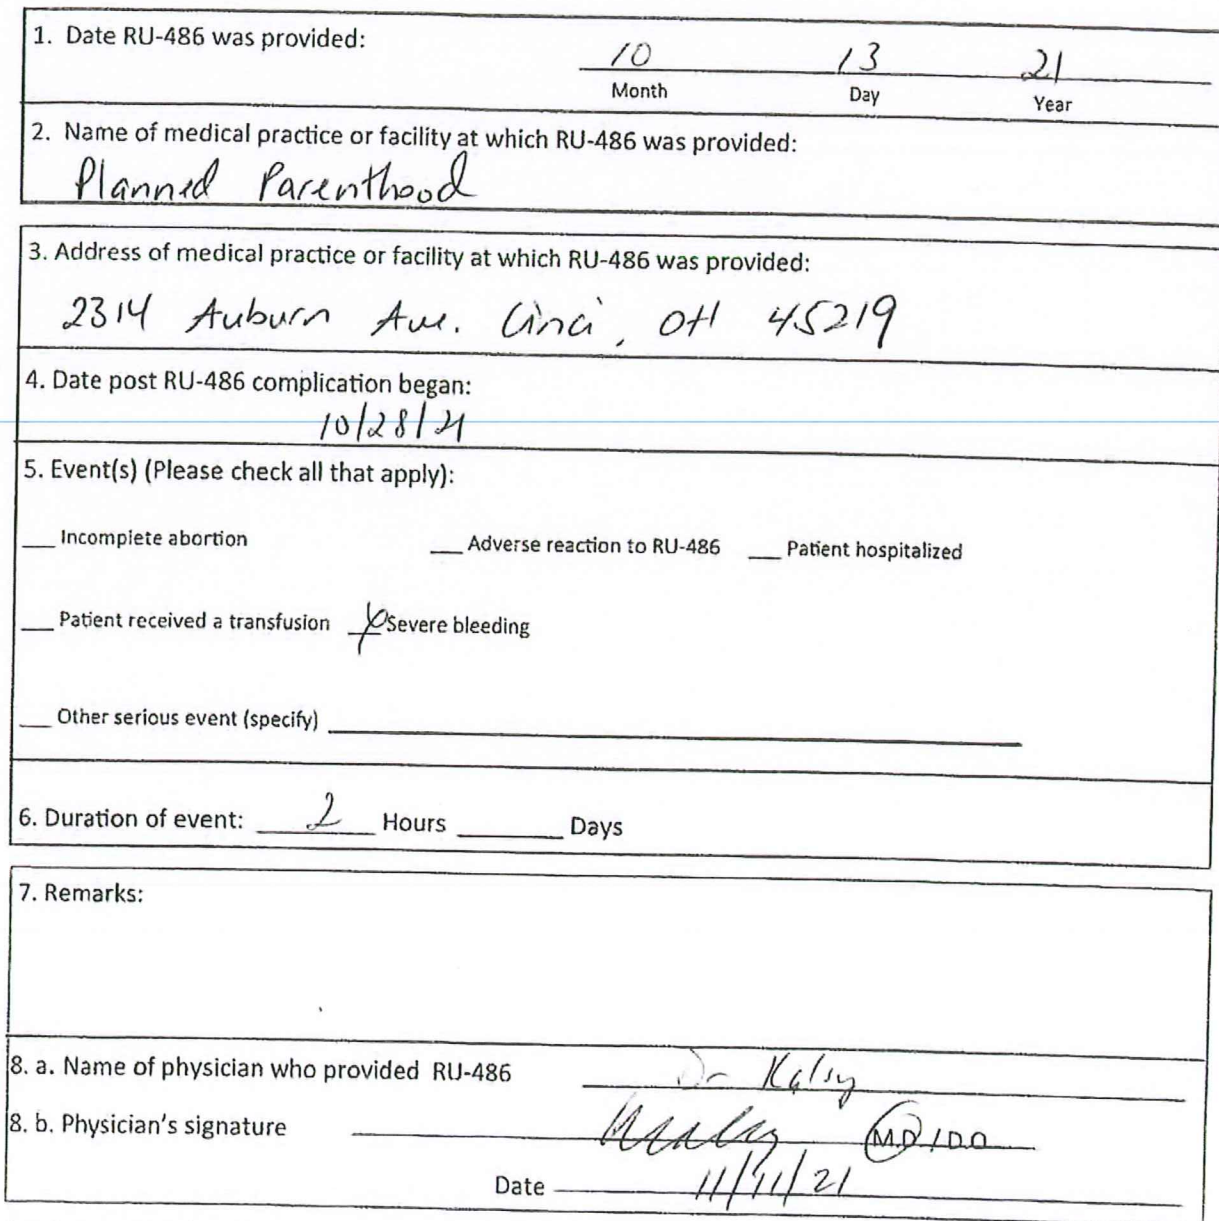 1. Date RU-486 was provided:
10 13 21
Month Day Year
2. Name of medical practice or facility at which RU-486 was provided:
Planned Parenthood
3. Address of medical practice or facility at which RU-486 was provided:
2314 Auburn Ave. Cinci, OH 45219
4. Date post RU-486 complication began:
10/28/21
5. Event(s) (Please check all that apply):
___ Incomplete abortion ___ Adverse reaction to RU-486 ___ Patient hospitalized
___ Patient received a transfusion Severe bleeding
___ Other serious event (specify)
6. Duration of event: 2 Hours ______ Days
7. Remarks:
8. a. Name of physician who provided RU-486 Dr Kalsy
8. b. Physician's signature M.D / D.O
Date 11/11/21